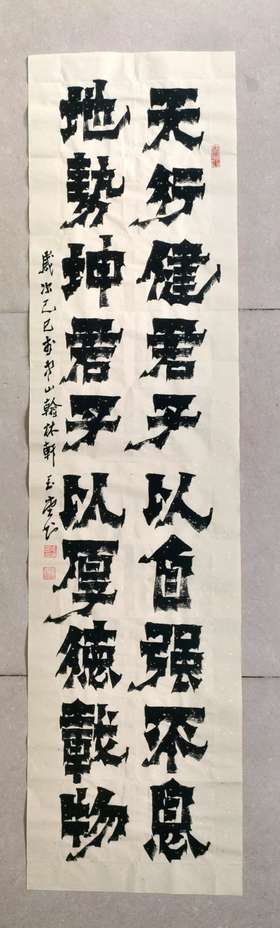 天行健君子以自强不息
地勢坤君子以厚德載物
歲次乙巳 山翰林軒 玉